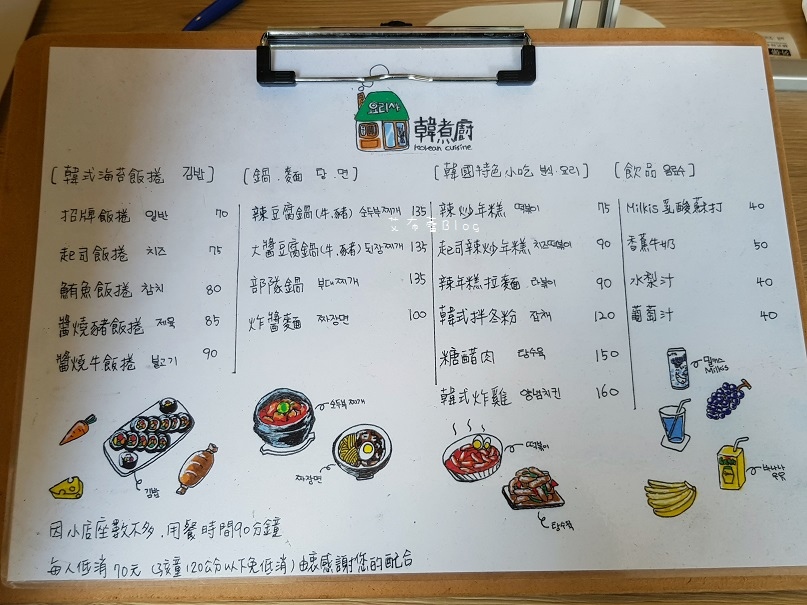 요리사
韓煮廚
Korean cuisine
[韓式海苔飯捲 김밥]
招牌飯捲 일반 70
起司飯捲 치즈 75
鮪魚飯捲 참치 80
醬燒豬飯捲 제육 85
醬燒牛飯捲 불고기 90
[鍋.麵 탕.면]
辣豆腐鍋(牛.豬) 순두부찌개 135
大醬豆腐鍋(牛.豬) 된장찌개 135
部隊鍋 부대찌개 135
炸醬麵 짜장면 100
[韓國特色小吃 분식.요리]
辣炒年糕 떡볶이 75
起司辣炒年糕 치즈떡볶이 90
辣年糕拉麵 라볶이 90
韓式拌冬粉 잡채 120
糖醋肉 탕수육 150
韓式炸雞 양념치킨 160
[飲品 음료수]
Milkis乳酸蘇打 40
香蕉牛奶 50
水梨汁 40
葡萄汁 40
艾布查Blog
김밥
순두부찌개
짜장면
떡볶이
탕수육
밀키스
Milkis
바나나
우유
因小店座數不多.用餐時間90分鐘
每人低消70元(孩童120公分以下免低消)由衷感謝您的配合